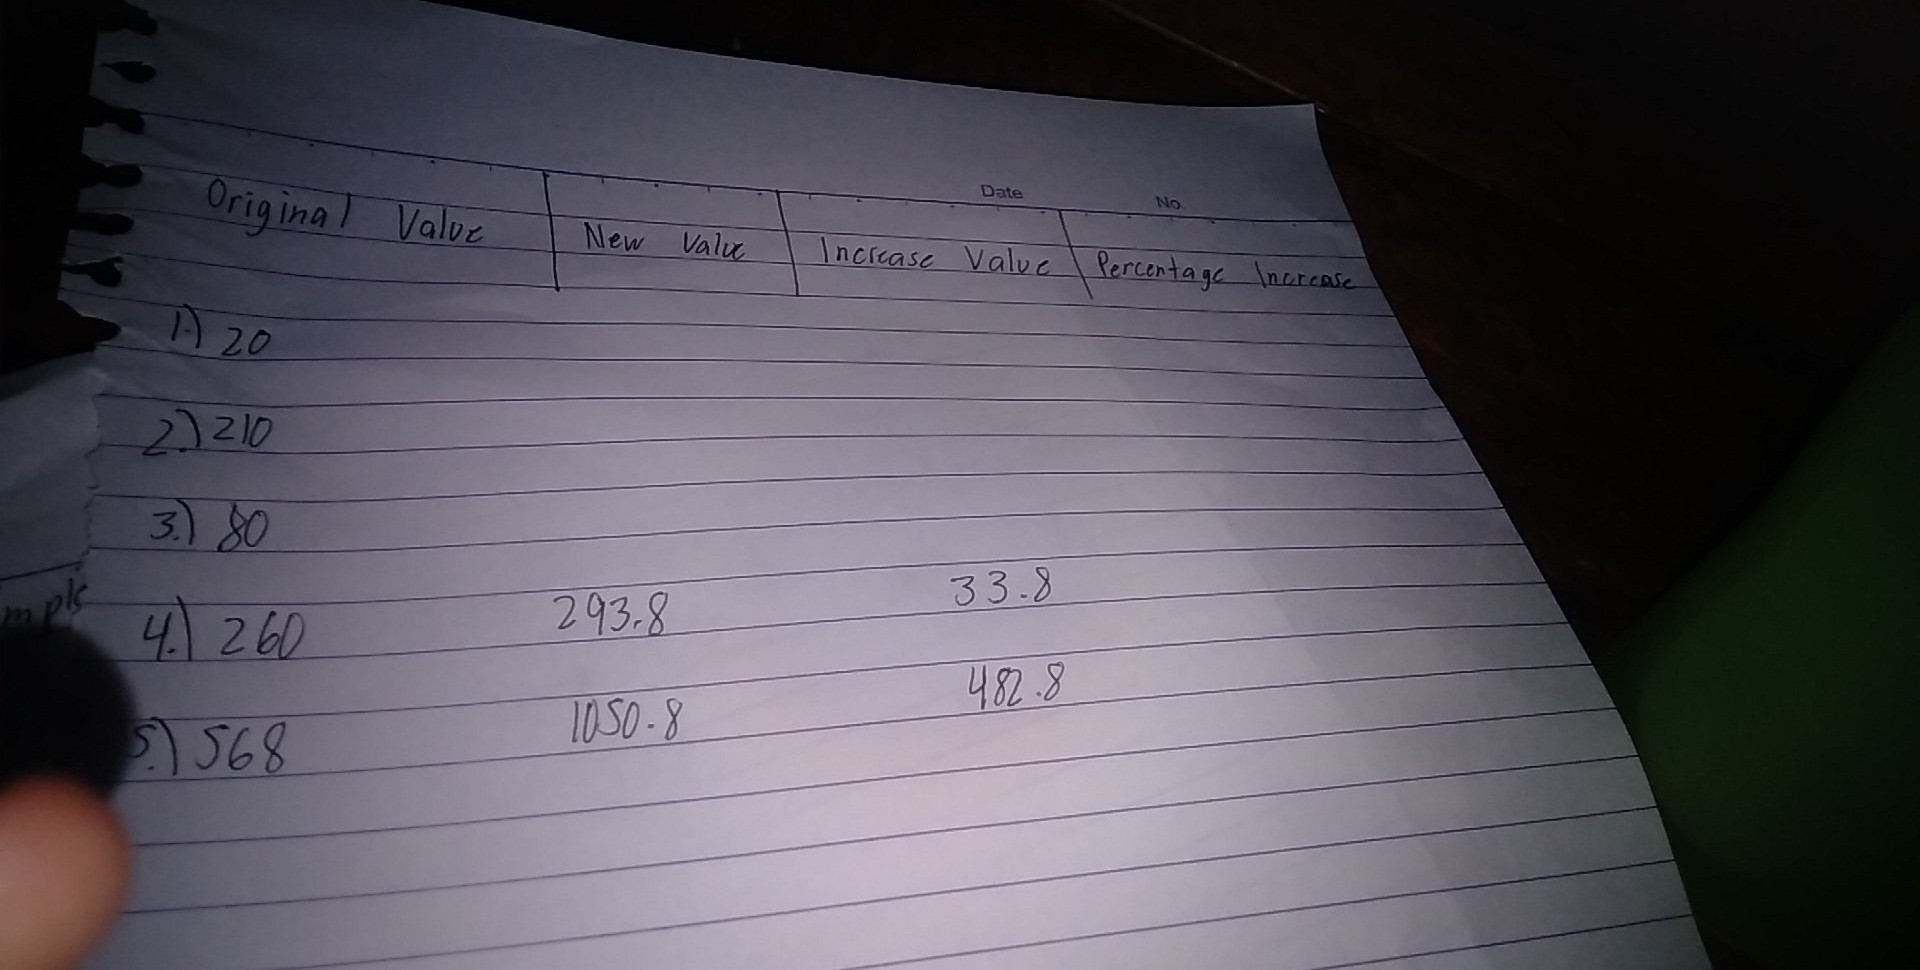 Date No.
Original Value New Value Increase Value Percentage Increase
1.) 20
2.) 210
3.) 80
4.) 260 293.8 33.8
5.) 568 1050.8 482.8